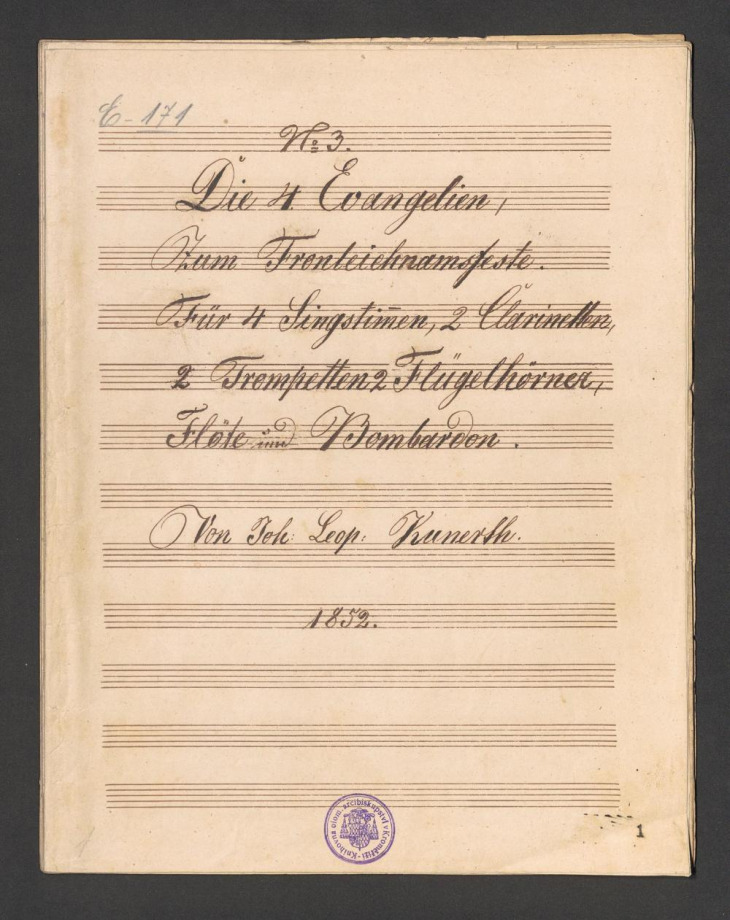 E-171
No 3.
Die 4 Evangelien,
Zum Fronleichnamsfeste.
Für 4 Singstim̄en, 2 Clarinetten,
2 Trompetten 2 Flügelhörner,
Flöte und Bombardon.
Von Joh: Leop: Kunerth.
1852.
Knihovna olom. arcibiskupství v Kroměříži
1